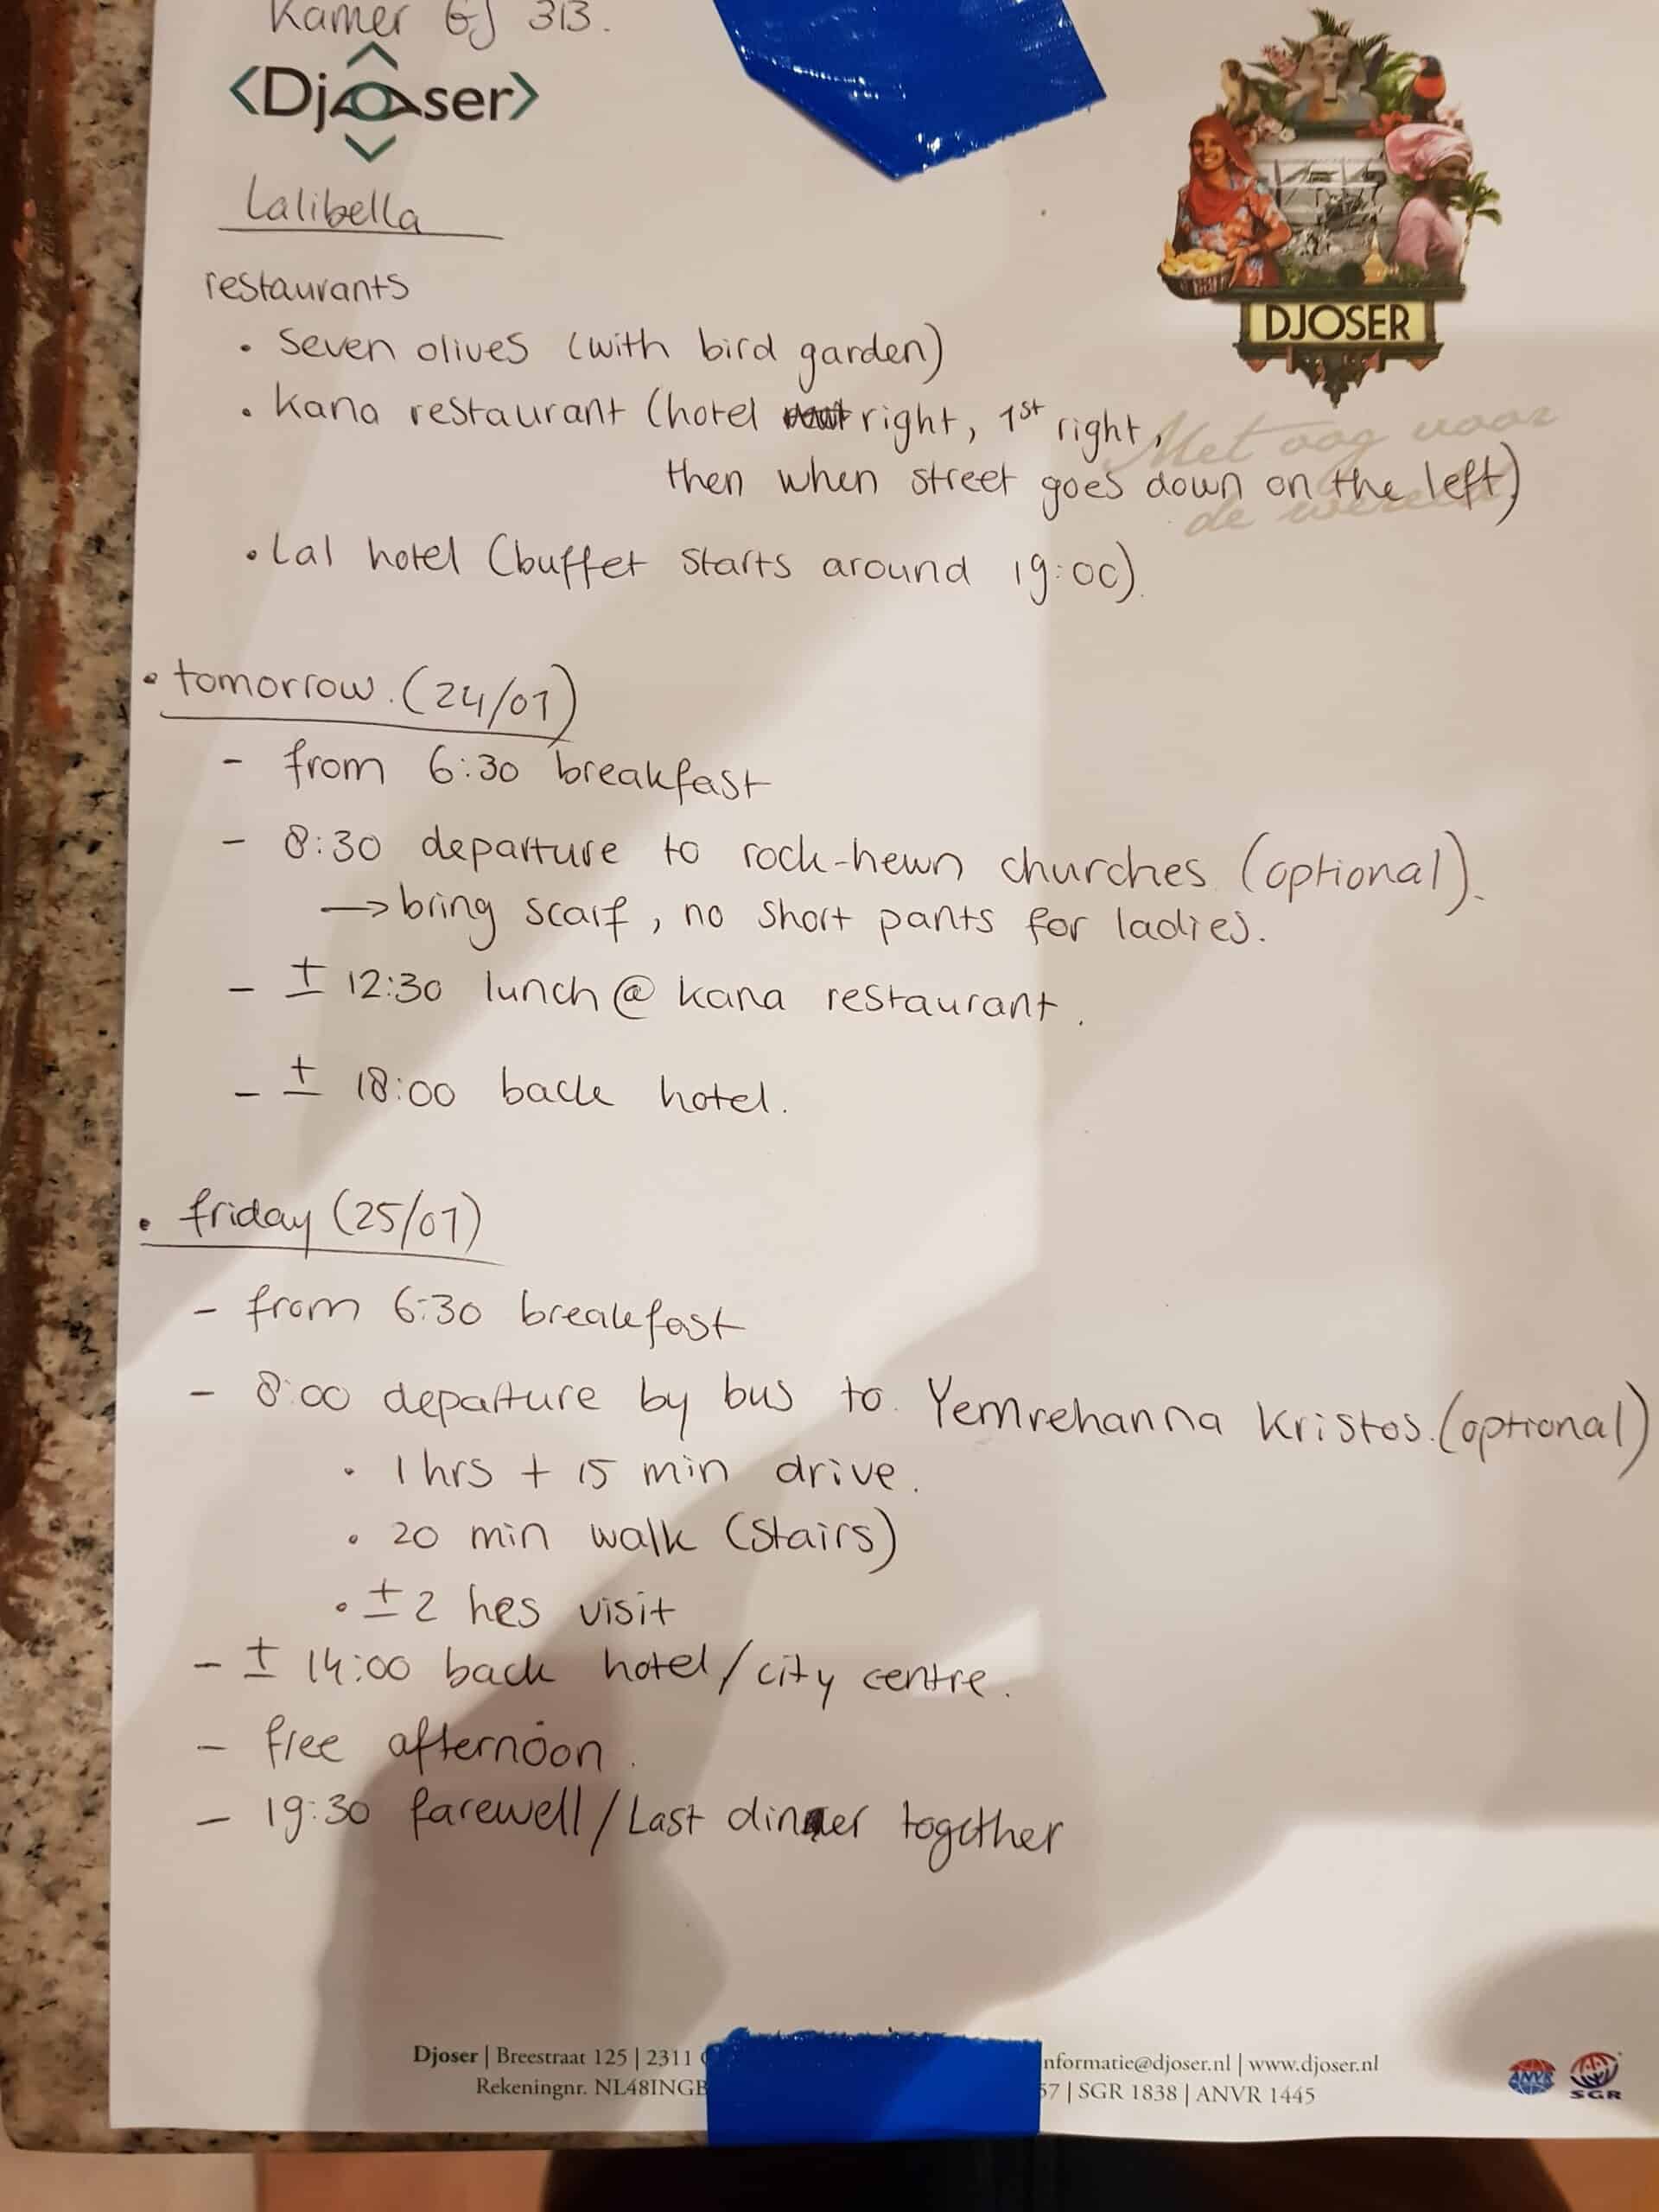 Kamer GJ 313.
<Djoser>
DJOSER
Met oog voor
de wereld
Lalibella
restaurants
• Seven olives (with bird garden)
• kana restaurant (hotel right, 1st right,
then when street goes down on the left)
• Lal hotel (buffet starts around 19:00).
• tomorrow. (24/01)
- from 6:30 breakfast
- 8:30 departure to rock-hewn churches (optional).
→ bring scarf, no short pants for ladies.
- ± 12:30 lunch @ kana restaurant.
- ± 18:00 back hotel.
• friday (25/01)
- from 6:30 breakfast
- 8:00 departure by bus to Yemrehanna Kristos. (optional)
• 1 hrs + 15 min drive.
• 20 min walk (stairs)
• ± 2 hrs visit
- ± 14:00 back hotel/city centre.
- free afternoon.
- 19:30 farewell/Last dinner together
Djoser | Breestraat 125 | 2311 nformatie@djoser.nl | www.djoser.nl
Rekeningnr. NL48INGB 57 | SGR 1838 | ANVR 1445
ANVR
SGR